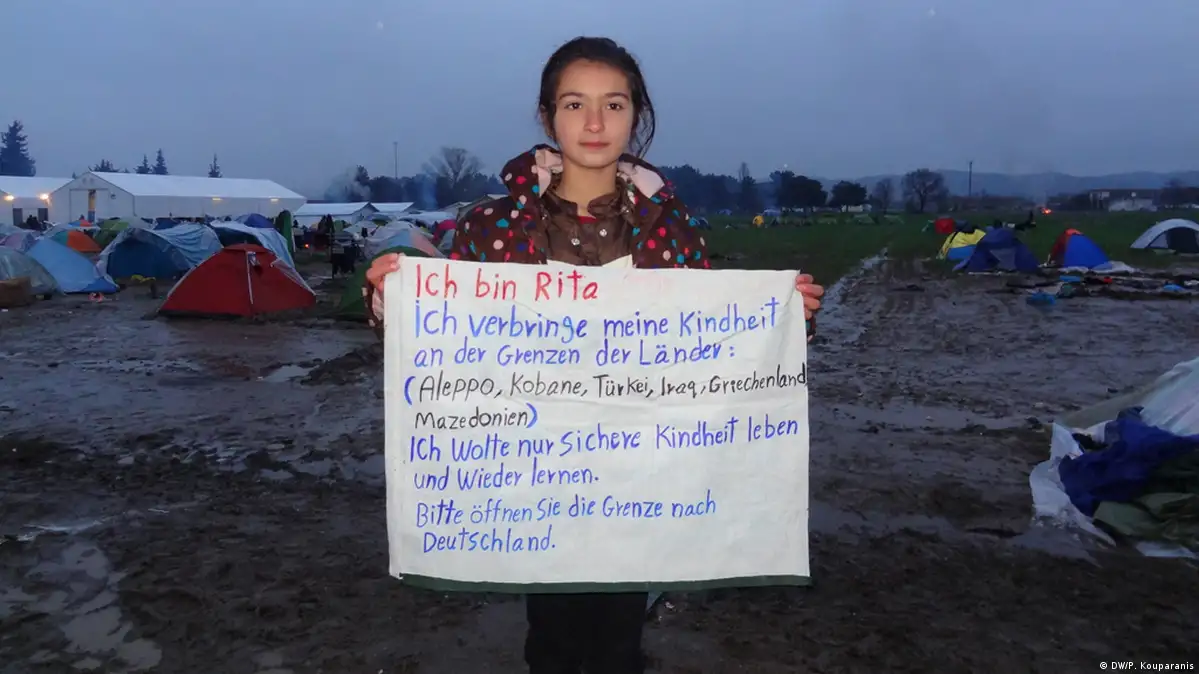 Ich bin Rita
Ich verbringe meine Kindheit
an der Grenzen der Länder:
(Aleppo, Kobane, Türkei, Iraq, Griechenland
Mazedonien)
Ich Wolte nur Sichere Kindheit leben
und Wieder lernen.
Bitte öffnen Sie die Grenze nach
Deutschland.
© DW/P. Kouparanis